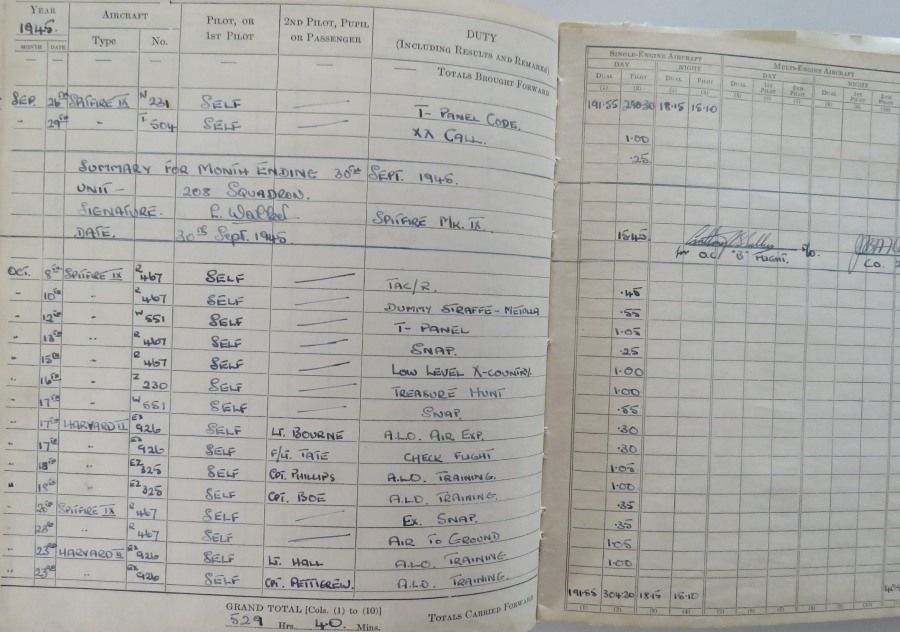 YEAR AIRCRAFT PILOT, OR 2ND PILOT, PUPIL DUTY
1945. 1ST PILOT OR PASSENGER (INCLUDING RESULTS AND REMARKS)
MONTH DATE Type No.
— — — — — — TOTALS BROUGHT FORWARD
SEP. 26TH SPITFIRE IX N 231 SELF — T- PANEL CODE.
" 29TH " T 504 SELF — XX CALL.
SUMMARY FOR MONTH ENDING 30TH SEPT. 1945.
UNIT — 208 SQUADRON.
SIGNATURE. SPITFIRE MK. IX.
DATE. 30TH Sept. 1945
OCT. 8TH SPITFIRE IX R 467 SELF — TAC/R.
" 10TH " R 467 SELF — DUMMY STRAFFE -
" 12TH " W 551 SELF — T- PANEL
" 13TH " R 467 SELF — SNAP.
" 15TH " R 467 SELF — LOW LEVEL X-COUNTRY.
" 16TH " Z 230 SELF — TREASURE HUNT
" 17TH " W 551 SELF — SNAP.
" 17TH HARVARD II EX 926 SELF LT. BOURNE A.L.O. AIR EXP.
" 17TH " EX 926 SELF F/LT. TATE CHECK FLIGHT
" 18TH " EZ 325 SELF CPT. PHILLIPS A.L.O. TRAINING.
" 19TH " EZ 325 SELF CPT. BOE A.L.O. TRAINING.
" SPITFIRE IX R 467 SELF — EX. SNAP.
" " R 467 SELF — AIR TO GROUND
" HARVARD II EX 926 SELF LT. HALL A.L.O. TRAINING
" " EX 926 SELF CPT. PETTIGREW. A.L.O. TRAINING.
GRAND TOTAL [Cols. (1) to (10)] TOTALS CARRIED FORWARD
529 Hrs. 40 Mins.
SINGLE-ENGINE AIRCRAFT MULTI-ENGINE AIRCRAFT
DAY NIGHT DAY NIGHT
DUAL PILOT DUAL PILOT DUAL 1ST PILOT 2ND PILOT DUAL 1ST PILOT 2ND PILOT
(1) (2) (3) (4) (5) (6) (7) (8) (9) (10)
191.55 18.15 15.10
1.00
.25
15.45
for O.C. "B" FLIGHT. CO. 2
.45
.55
1.05
.25
1.00
1.00
.55
.30
.30
1.05
1.00
.35
.35
1.05
1.00
191.55 304.20 18.15 15.10
(1) (2) (3) (4) (5) (6) (7) (8) (9) (10)